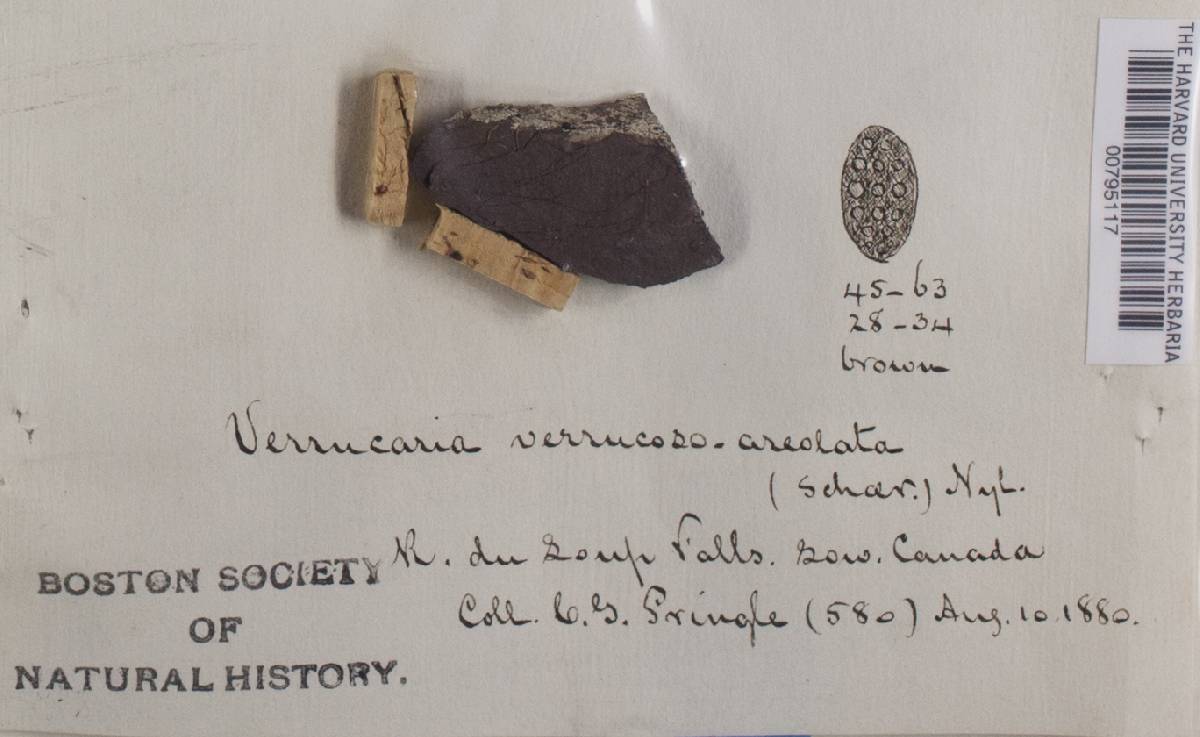 THE HARVARD UNIVERSITY HERBARIA
00795117
45-63
28-34
brown
Verrucaria verrucoso-areolata
(Schaer.) Nyl.
R. du Loup Falls. Low. Canada
Coll. C.G. Pringle (580) Aug. 10. 1880.
BOSTON SOCIETY
OF
NATURAL HISTORY.